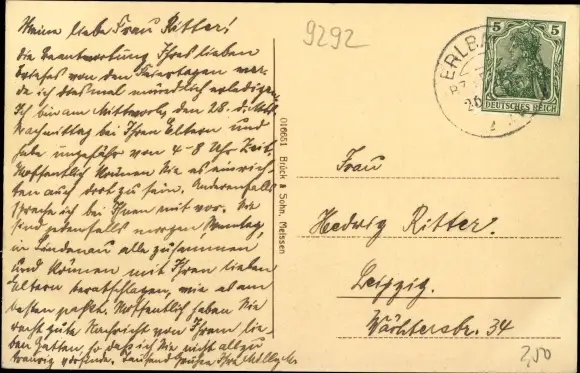 Meine liebe Frau Ritter!
die Beantwortung Ihres lieben
Briefes von den Feiertagen wer-
de ich diesmal mündlich erledigen.
Ich bin am Mittwoch, den 28. d. Mts.
Nachmittag bei Ihren Eltern und
habe ungefähr von 4-8 Uhr Zeit.
Hoffentlich können Sie es einrich-
ten auch dort zu sein. Anderenfalls
spreche ich bei Ihnen mit vor. Sie
sind jedenfalls morgen Sonntag,
in Lindenau alle zusammen
und können mit Ihren lieben
Eltern beratschlagen, wie es am
besten paßt. Hoffentlich haben Sie
recht gute Nachricht von Ihrem lie-
ben Gatten, so daß ich Sie nicht allzu
traurig vorfinde. Tausend Grüße Ihre Milly M.
9292
016651 Brück & Sohn, Meissen
ERLBA
5 5
DEUTSCHES REICH
Frau
Hedwig Ritter.
Leipzig.
Wächterstr. 34
2,50